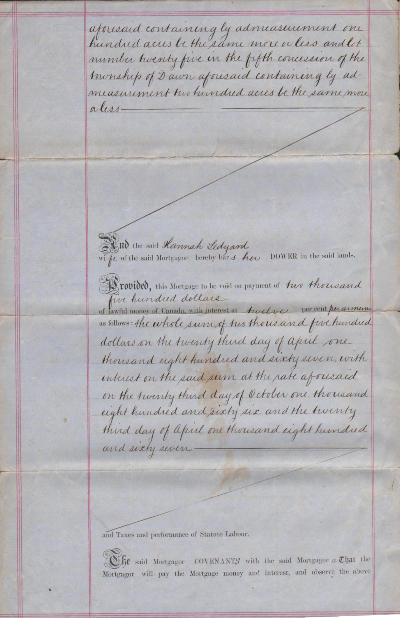 aforesaid containing by admeasurement one
hundred acres be the same more or less and lot
number twenty five in the fifth concession of the
township of Dawn aforesaid containing by ad-
measurement two hundred acres be the same more
or less
And the said Hannah Ledyard
wife of the said Mortgagor hereby bars her DOWER in the said lands.
Provided, this Mortgage to be void on payment of two thousand
five hundred dollars
of lawful money of Canada, with interest at twelve per cent per annum
as follows: the whole sum of two thousand five hundred
dollars on the twenty third day of April one
thousand eight hundred and sixty seven, with
interest on the said sum at the rate aforesaid
on the twenty third day of October one thousand
eight hundred and sixty six and the twenty
third day of April one thousand eight hundred
and sixty seven
and Taxes and performance of Statute Labour.
The said Mortgagor COVENANTS with the said Mortgagee That the
Mortgagor will pay the Mortgage money and interest, and observe the above